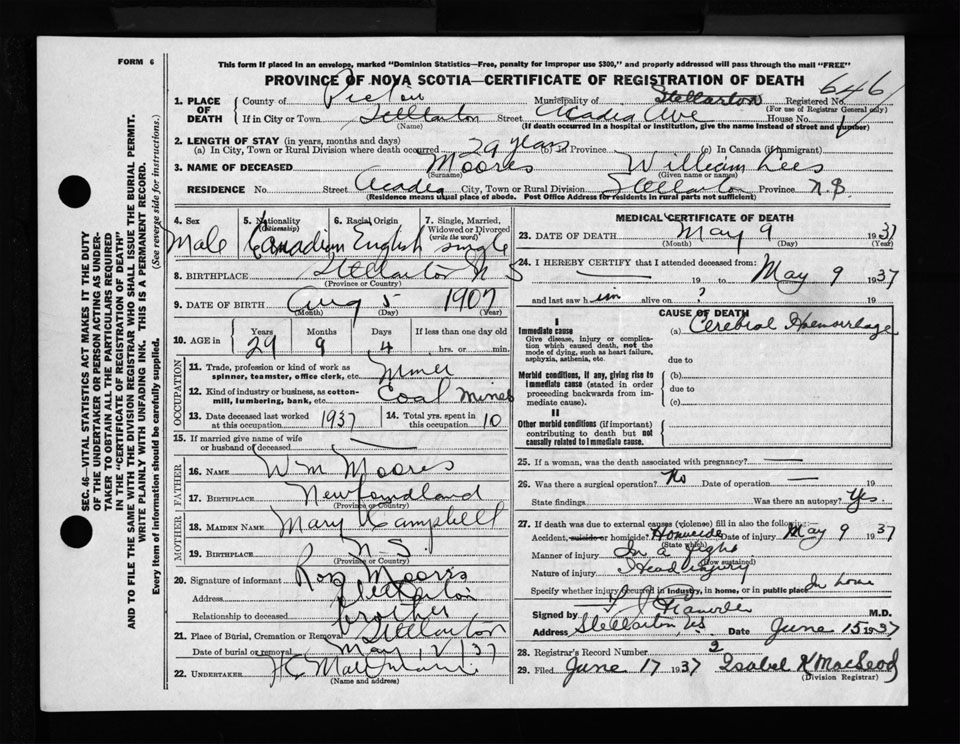 FORM 6
This form if placed in an envelope, marked "Dominion Statistics—Free, penalty for improper use $300," and properly addressed will pass through the mail "FREE"
PROVINCE OF NOVA SCOTIA—CERTIFICATE OF REGISTRATION OF DEATH
646
1. PLACE OF DEATH County of Pictou Municipality of Stellarton Registered No.
(For use of Registrar General only)
If in City or Town Stellarton Street Acadia Ave House No.
(Name) (If death occurred in a hospital or institution, give the name instead of street and number)
2. LENGTH OF STAY (in years, months and days)
(a) In City, Town or Rural Division where death occurred 29 years (b) In Province (c) In Canada (if immigrant)
3. NAME OF DECEASED Moores William Lees
(Surname) (Given name or names)
RESIDENCE No. Street Acadia City, Town or Rural Division Stellarton Province N.S.
(Residence means usual place of abode. Post Office Address for residents in rural parts not sufficient)
4. Sex 5. Nationality (Citizenship) 6. Racial Origin 7. Single, Married, Widowed or Divorced (write the word)
Male Canadian English single
8. BIRTHPLACE Stellarton N S
(Province or Country)
9. DATE OF BIRTH Aug 5 1907
(Month) (Day) (Year)
10. AGE in Years Months Days If less than one day old
29 9 4 hrs. or min.
OCCUPATION
11. Trade, profession or kind of work as spinner, teamster, office clerk, etc. Miner
12. Kind of industry or business, as cotton-mill, lumbering, bank, etc. Coal Mines
13. Date deceased last worked at this occupation 1937 14. Total yrs. spent in this occupation 10
15. If married give name of wife or husband of deceased
FATHER
16. NAME Wm Moores
17. BIRTHPLACE Newfoundland
(Province or Country)
MOTHER
18. MAIDEN NAME Mary Campbell
19. BIRTHPLACE N.S.
(Province or Country)
20. Signature of informant Ross Moores
Address Stellarton
Relationship to deceased brother
21. Place of Burial, Cremation or Removal Stellarton
Date of burial or removal May 12/37
22. UNDERTAKER
(Name and address)
MEDICAL CERTIFICATE OF DEATH
23. DATE OF DEATH May 9 1937
(Month) (Day) (Year)
24. I HEREBY CERTIFY that I attended deceased from:
19 to May 9 1937
and last saw him alive on ? 19
CAUSE OF DEATH
I
Immediate cause (a) Cerebral Haemorrhage
Give disease, injury or complication which caused death, not the mode of dying, such as heart failure, asphyxia, asthenia, etc.
due to
Morbid conditions, if any, giving rise to immediate cause (stated in order proceeding backwards from immediate cause). (b)
due to
(c)
II
Other morbid conditions (if important) contributing to death but not causally related to immediate cause.
25. If a woman, was the death associated with pregnancy?
26. Was there a surgical operation? No Date of operation
State findings Was there an autopsy? Yes
27. If death was due to external causes (violence) fill in also the following:
Accident, suicide or homicide? Homicide Date of injury May 9 1937
(State which)
Manner of injury In a fight
(How sustained)
Nature of injury Head injury
Specify whether injury occurred in industry, in home, or in public place In home
Signed by M.D.
Address Stellarton, N.S. Date June 15 1937
28. Registrar's Record Number 2
29. Filed June 17 1937 Isabel K MacLeod
(Division Registrar)
SEC. 46—VITAL STATISTICS ACT MAKES IT THE DUTY
OF THE UNDERTAKER OR PERSON ACTING AS UNDER-
TAKER TO OBTAIN ALL THE PARTICULARS REQUIRED
IN THE "CERTIFICATE OF REGISTRATION OF DEATH"
AND TO FILE THE SAME WITH THE DIVISION REGISTRAR WHO SHALL ISSUE THE BURIAL PERMIT.
WRITE PLAINLY WITH UNFADING INK. THIS IS A PERMANENT RECORD.
Every item of information should be carefully supplied. (See reverse side for instructions.)